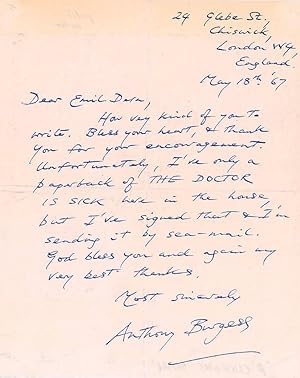 24 Glebe St,
Chiswick,
London W4,
England.
May 18th '67
Dear Emil
How very kind of you to
write. Bless your heart, & thank
you for your encouragement.
Unfortunately, I've only a
paperback of THE DOCTOR
IS SICK here in the house,
but I've signed that & I'm
sending it by sea-mail.
God bless you and again my
very best thanks.
Most sincerely
Anthony Burgess